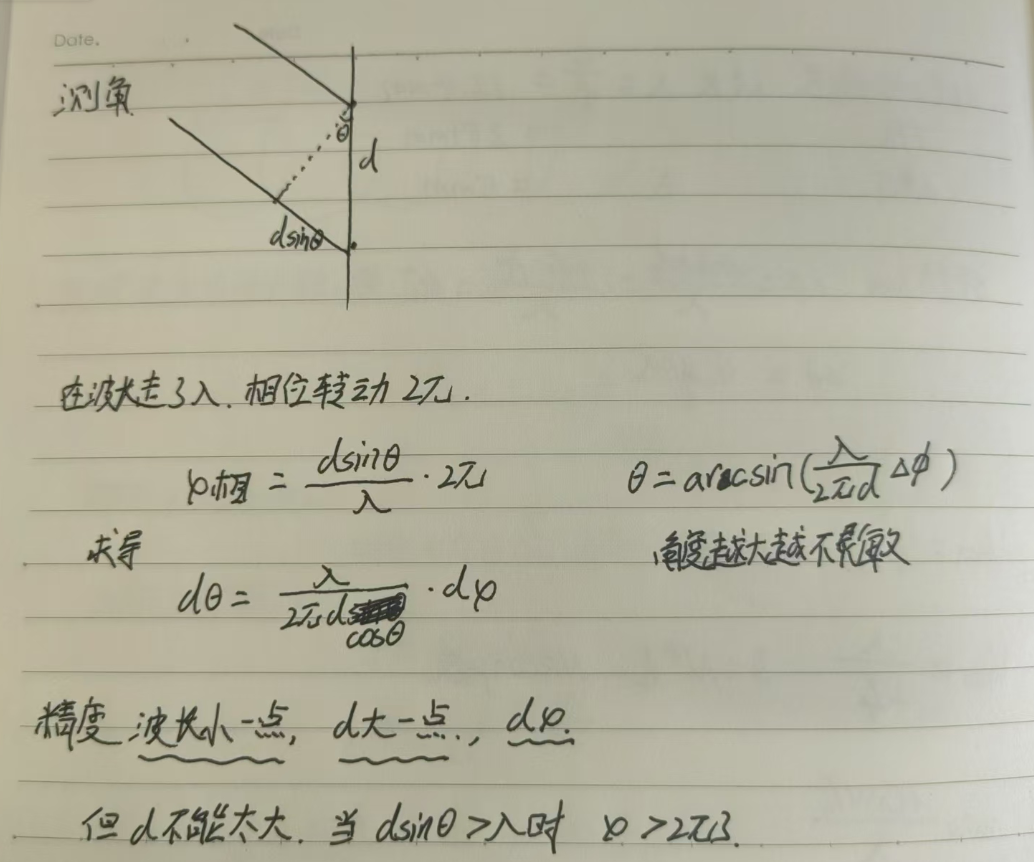 Date.
测角
θ
d
dsinθ
在波长走了λ. 相位转动 2π.
φ相 = dsinθ/λ · 2π
θ = arcsin(λ/2πd Δϕ)
求导
角度越大越不灵敏
dθ = λ/2πd cosθ · dφ
精度 波长小一点, d大一点., dφ.
但 d 不能太大. 当 dsinθ > λ时 φ > 2π了.